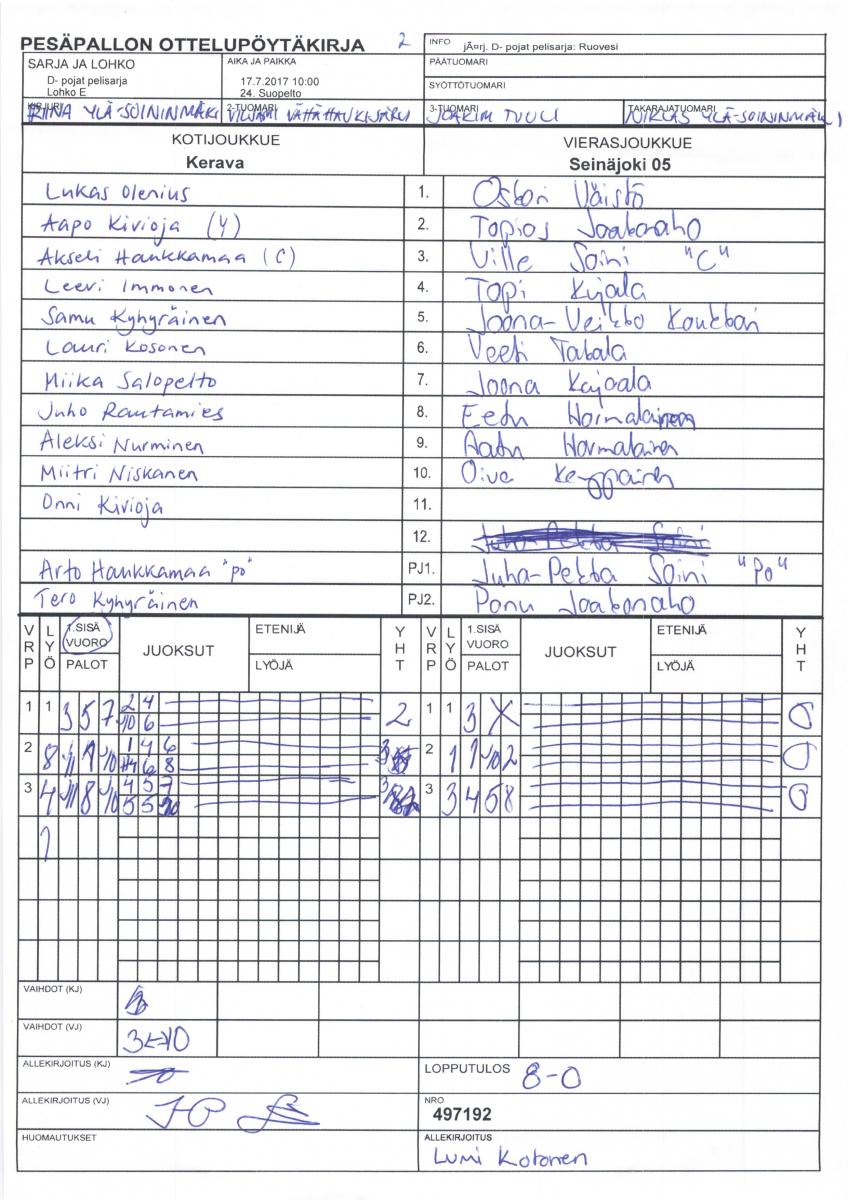 PESÄPALLON OTTELUPÖYTÄKIRJA 2
INFO jÃ¤rj. D- pojat pelisarja: Ruovesi
SARJA JA LOHKO
D- pojat pelisarja
Lohko E
AIKA JA PAIKKA
17.7.2017 10:00
24. Suopelto
PÄÄTUOMARI
SYÖTTÖTUOMARI
KIRJURI RIINA YLÄ-SOININMÄKI
2-TUOMARI VILJAMI VÄHÄHAUKIJÄRVI
3-TUOMARI JOAKIM TUULI
TAKARAJATUOMARI NIKLAS YLÄ-SOININMÄKI
KOTIJOUKKUE VIERASJOUKKUE
Kerava Seinäjoki 05
Lukas Olenius 1. Oskari Väistö
Aapo Kivioja (Y) 2. Topias Jaakonaho
Akseli Hankkamaa (C) 3. Ville Soini "C"
Leevi Immonen 4. Topi Kujala
Samu Kyhyräinen 5. Joona-Veikko
Lauri Kosonen 6. Veeti Takala
Miika Salopelto 7. Joona
Juho Rautamies 8. Eetu
Aleksi Nurminen 9. Aatu
Miitri Niskanen 10.
Onni Kivioja 11.
12. Juha-Pekka Soini
Arto Hankkamaa "PO" PJ1. Juha-Pekka Soini "PO"
Tero Kyhyräinen PJ2. Panu Jaakonaho
VRP LYÖ 1.SISÄ VUORO PALOT JUOKSUT ETENIJÄ LYÖJÄ YHT VRP LYÖ 1.SISÄ VUORO PALOT JUOKSUT ETENIJÄ LYÖJÄ YHT
1 1 3 5 7 2 4 2 1 1 3 X 0
10 6
2 8 11 1 10 1 4 6 3 2 1 1 10 2 0
4 6 8
3 4 11 8 10 4 5 7 3 3 3 4 5 8 0
5 5
1
VAIHDOT (KJ)
VAIHDOT (VJ) 3<=>10
ALLEKIRJOITUS (KJ)
LOPPUTULOS 8-0
ALLEKIRJOITUS (VJ) JP
NRO
497192
HUOMAUTUKSET
ALLEKIRJOITUS
Lumi Kotonen